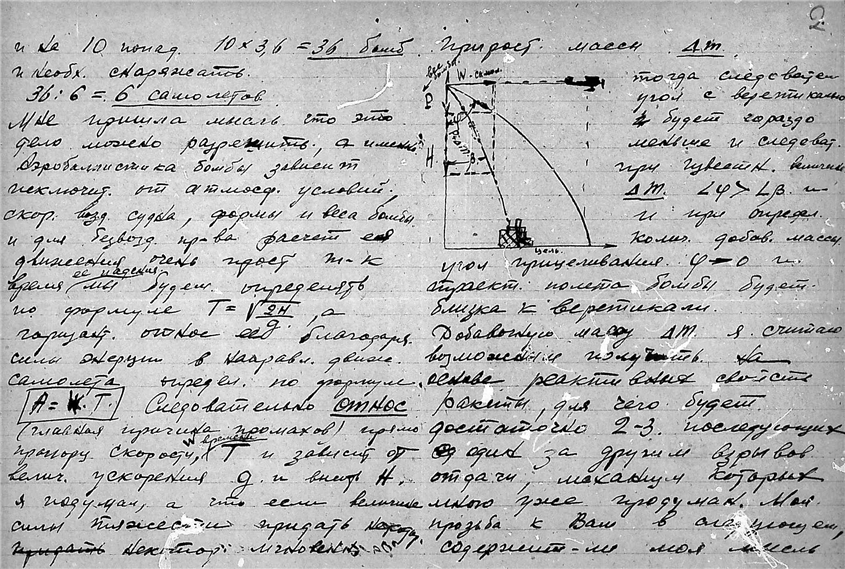 и на 10 попад. 10×3,6 = 36 бомб
и необх. снаряжать.
36:6 = 6 самолетов.
Мне пришла мысль что это
дело можно разрешить, а именно
Аэробаллистика бомбы зависит
исключит. от атмосф. условий,
скор. возд. судна, формы и веса бомбы
и для безвозд. пр-ва расчет её
движения очень прост т-к
время её падения мы будем определять
по формуле T=√2H/g, а
горизонт. относ её благодаря
силы энерции в направл. движ.
самолета определ. по формуле
A = W. T. Следовательно относ
(главная причина промахов) прямо
пропорц. скорости W, времени T и зависит от
велич. ускорения g. и высоты H.
я подумал, а что если величине
силы тяжести придать
придать некотор. мгновенн.
2
Прирост. массы Δm.
W-самол.
H
цель.
тогда следовател.
угол с вертикалью
будет гораздо
меньше и следоват.
при известн. величине
Δm. ∠φ > ∠β. и
и при определ.
колич. добав. массы
угол прицеливания φ→0 и
траект. полета бомбы будет
близка к вертикали.
Добавочную массу Δm я считаю
возможным получить на
основе реактивных свойств
ракеты, для чего будет
достаточно 2-3. последующих
один за другим взрывов
отдачи, механизм которых
мною уже продуман. Моя
прозьба к Вам в следующем,
содержит-ли моя мысль